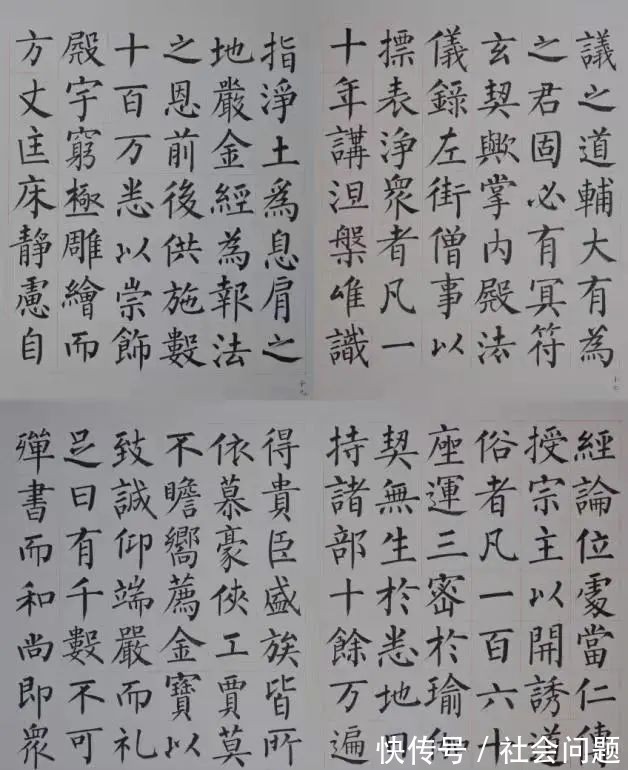 議之道輔大有為
之君固必有冥符
玄契歟掌內殿法
儀錄左街僧事以
摽表淨衆者凡一
十年講涅槃唯識
十七
經論位處當仁傳
授宗主以開誘道
俗者凡一百六十
座運三密於瑜伽
契無生於悉地
持諸部十餘万遍
指淨土爲息肩之
地嚴金經為報法
之恩前後供施數
十百万悉以崇飾
殿宇窮極雕繪而
方丈匡床靜慮自
十九
得貴臣盛族皆所
依慕豪俠工賈莫
不瞻嚮薦金寶以
致誠仰端嚴而礼
足日有千數不可
殫書而和尚即衆
快传号 / 社会问题